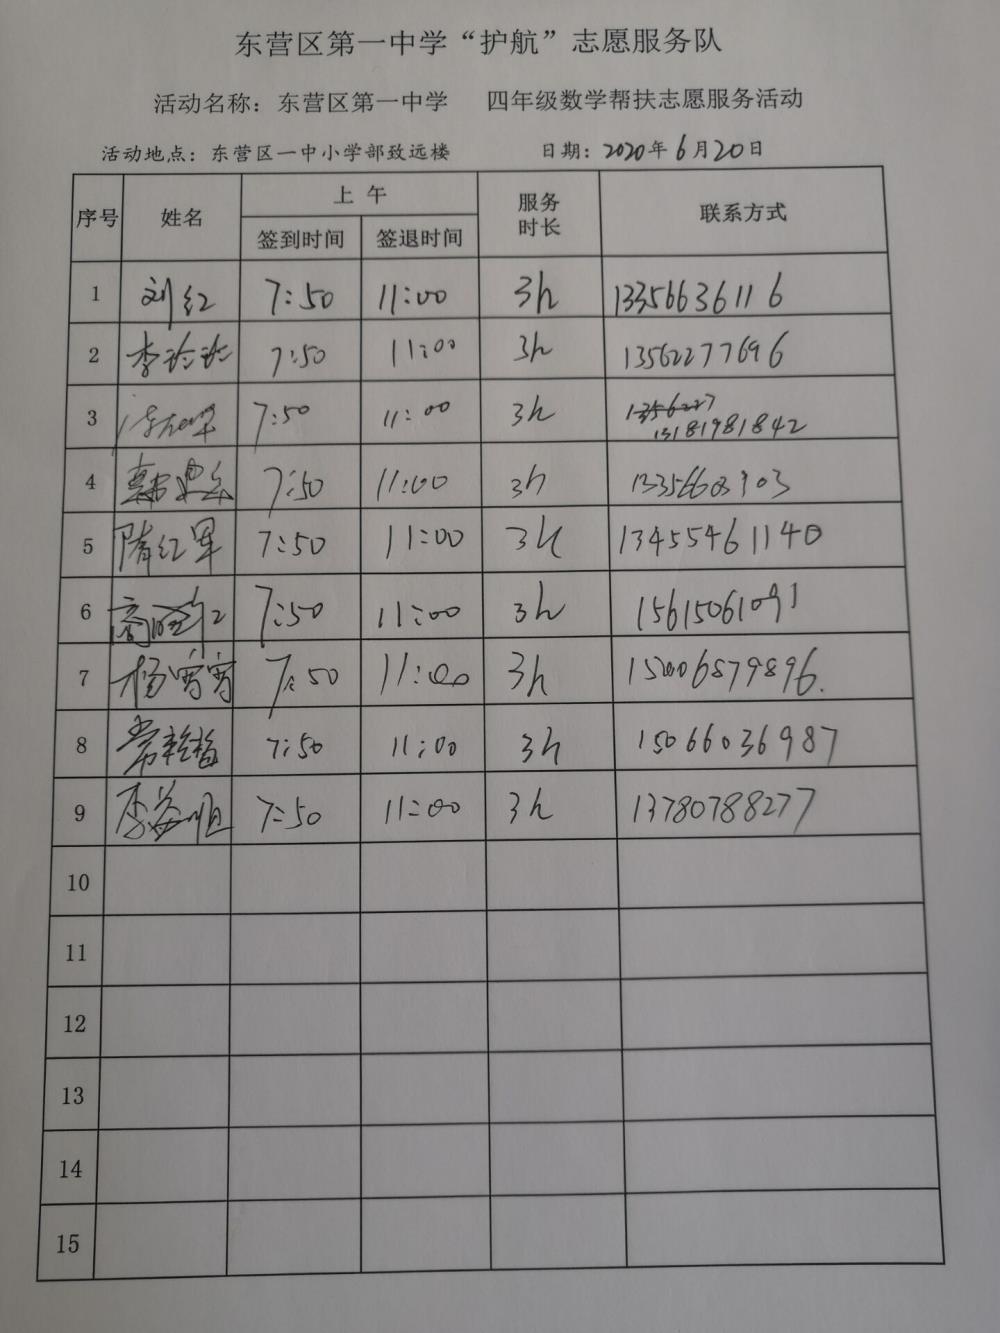 东营区第一中学“护航”志愿服务队
活动名称：东营区第一中学 四年级数学帮扶志愿服务活动
活动地点：东营区一中小学部致远楼 日期：2020年6月20日
序号 姓名 上午 服务时长 联系方式
签到时间 签退时间
1 刘红 7:50 11:00 3h 13356636116
2 李玲玲 7:50 11:00 3h 13562277696
3 7:50 11:00 3h 1356227
13181981842
4 7:50 11:00 3h 13356603903
5 隋红军 7:50 11:00 3h 13455461140
6 7:50 11:00 3h 15615061091
7 杨霄霄 7:50 11:00 3h 15006879896.
8 7:50 11:00 3h 15066036987
9 李 7:50 11:00 3h 13780788277
10
11
12
13
14
15